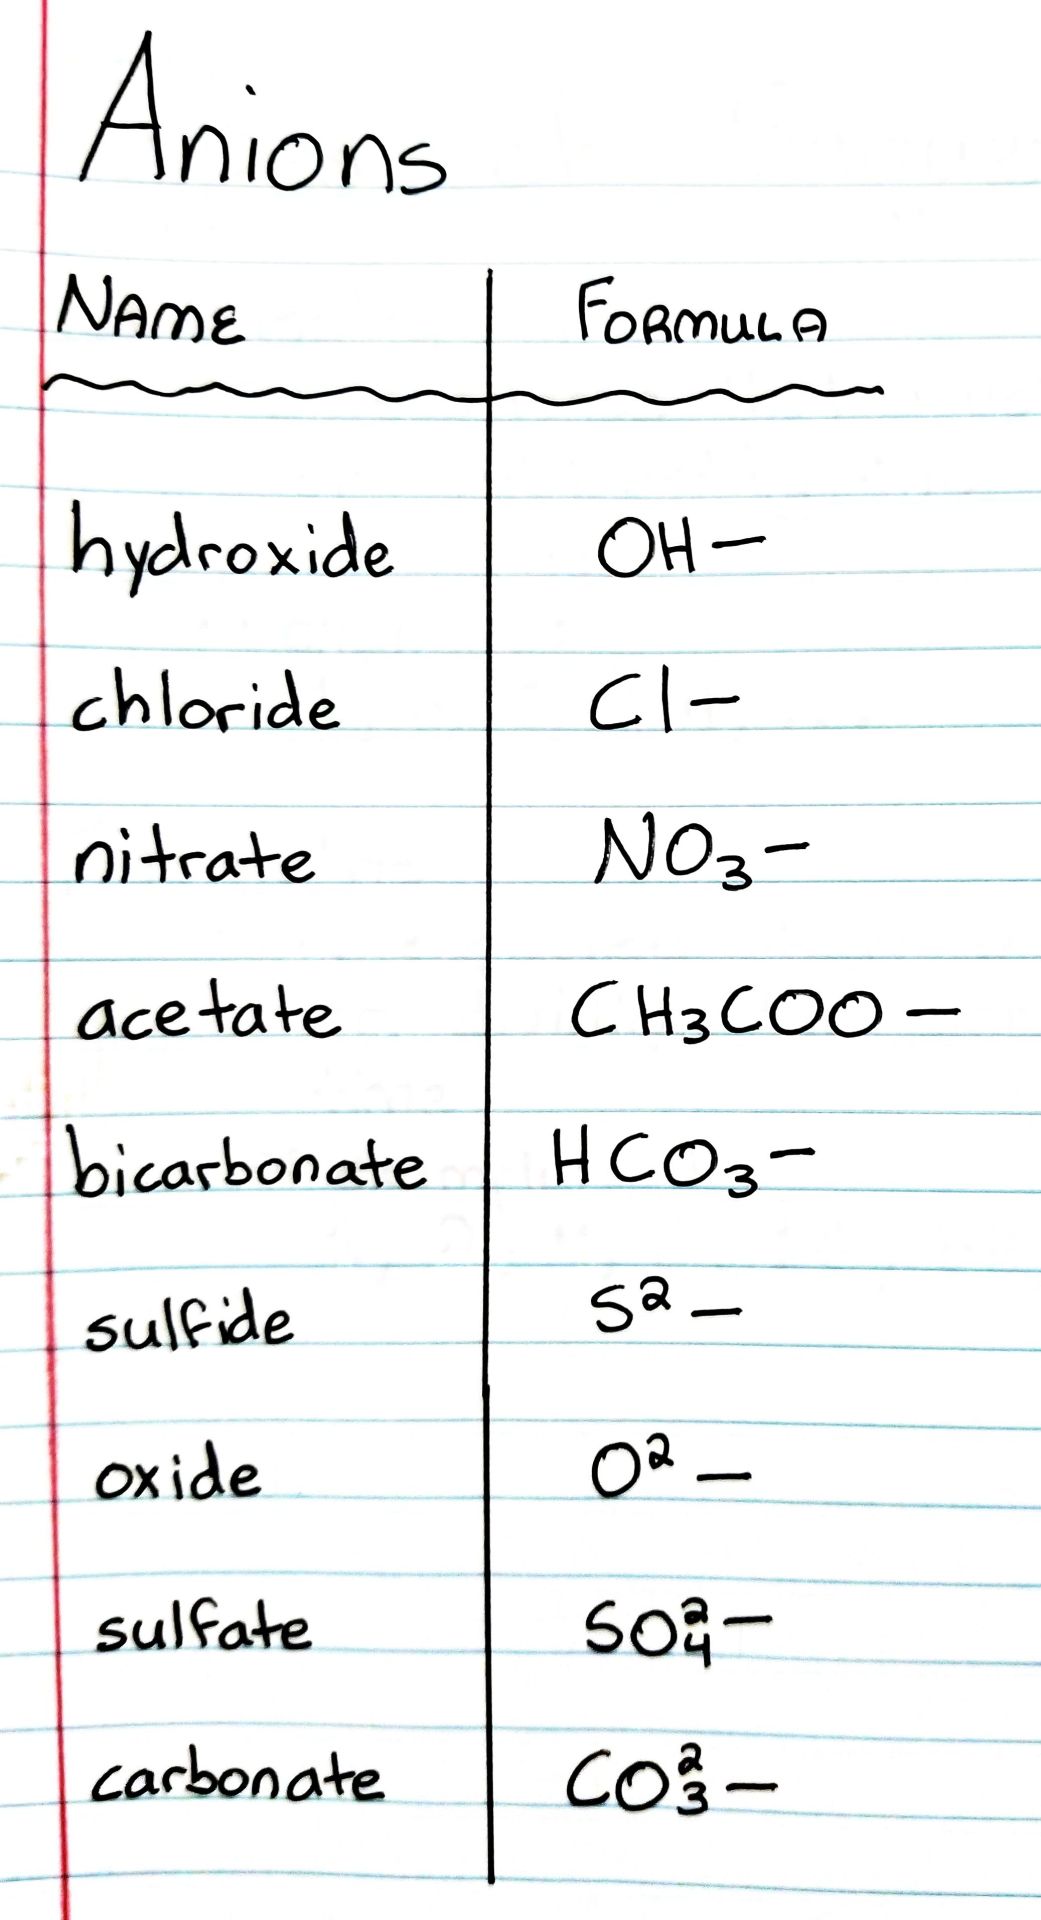 Anions
NAME FORMULA
hydroxide OH−
chloride Cl−
nitrate NO₃−
acetate CH₃COO−
bicarbonate HCO₃−
sulfide S² −
oxide O² −
sulfate SO₄²−
carbonate CO₃²−